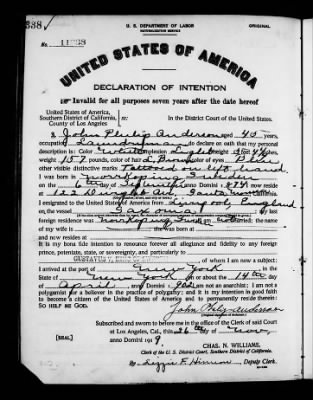 338
U. S. DEPARTMENT OF LABOR
NATURALIZATION SERVICE
ORIGINAL
No.
UNITED STATES OF AMERICA
DECLARATION OF INTENTION
Invalid for all purposes seven years after the date hereof
United States of America,
Southern District of California,
County of Los Angeles
ss:
In the District Court of the United States.
I, John Philip Anderson, aged 45 years,
occupation Laundryman, do declare on oath that my personal
description is: Color White, complexion Light, height feet inches,
weight 157 pounds, color of hair L. Brown, color of eyes Blue
other visible distinctive marks Tattooed on left hand
I was born in Norrkoping Sweden
on the 6th day of September, anno Domini 1874; now reside
at Santa Monica
I emigrated to the United States of America from Liverpool, England
on the vessel Saxonia; my last
foreign residence was Norrkoping Sweden; the name
of my wife is; she was born at
and now resides at
It is my bona fide intention to renounce forever all allegiance and fidelity to any foreign
prince, potentate, state, or sovereignty, and particularly to
, of whom I am now a subject;
I arrived at the port of New York, in the
State of New York, on or about the 14th day
of April, anno Domini 1902; I am not an anarchist; I am not a
polygamist nor a believer in the practice of polygamy; and it is my intention in good faith
to become a citizen of the United States of America and to permanently reside therein:
SO HELP ME GOD.
John Philip Anderson
(Original signature of declarant.)
Subscribed and sworn to before me in the office of the Clerk of said Court
at Los Angeles, Cal., this 26th day of Nov.,
[SEAL]
anno Domini 1919.
CHAS. N. WILLIAMS,
Clerk of the U. S. District Court, Southern District of California.
By Deputy Clerk.